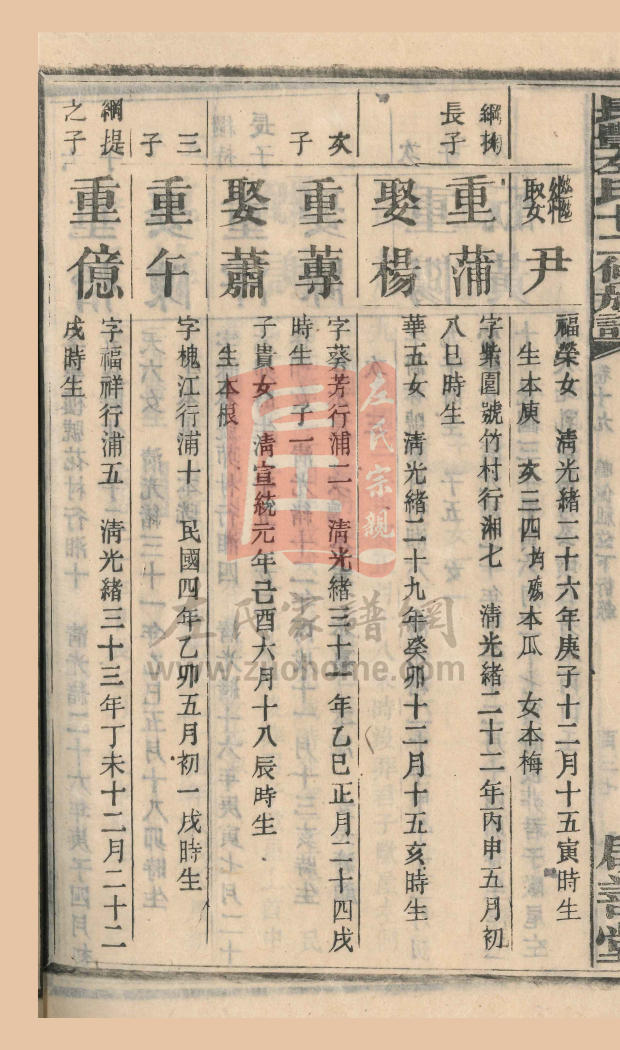 長豐左氏十二修族譜
卷十九
居善堂
繼娶 尹
福榮女 清光緒二十六年庚子十二月十五寅時生
生本庚 次三四均殤本瓜 女本梅
綱
長子
重蒲
字紫園號竹村行湘七 清光緒二十二年丙申五月初
八巳時生
娶楊
華五女 清光緒二十九年癸卯十二月十五亥時生
次子
重蓴
字葵芳行浦二 清光緒三十一年乙巳正月二十四戌
時生 子一
娶蕭
子貴女 清宣統元年己酉六月十八辰時生
生本根
三子
重午
字槐江行浦十 民國四年乙卯五月初一戌時生
綱提
之子
重億
字福祥行浦五 清光緒三十三年丁未十二月二十二
戌時生
左氏宗親
左氏家譜網
www.zuohome.com